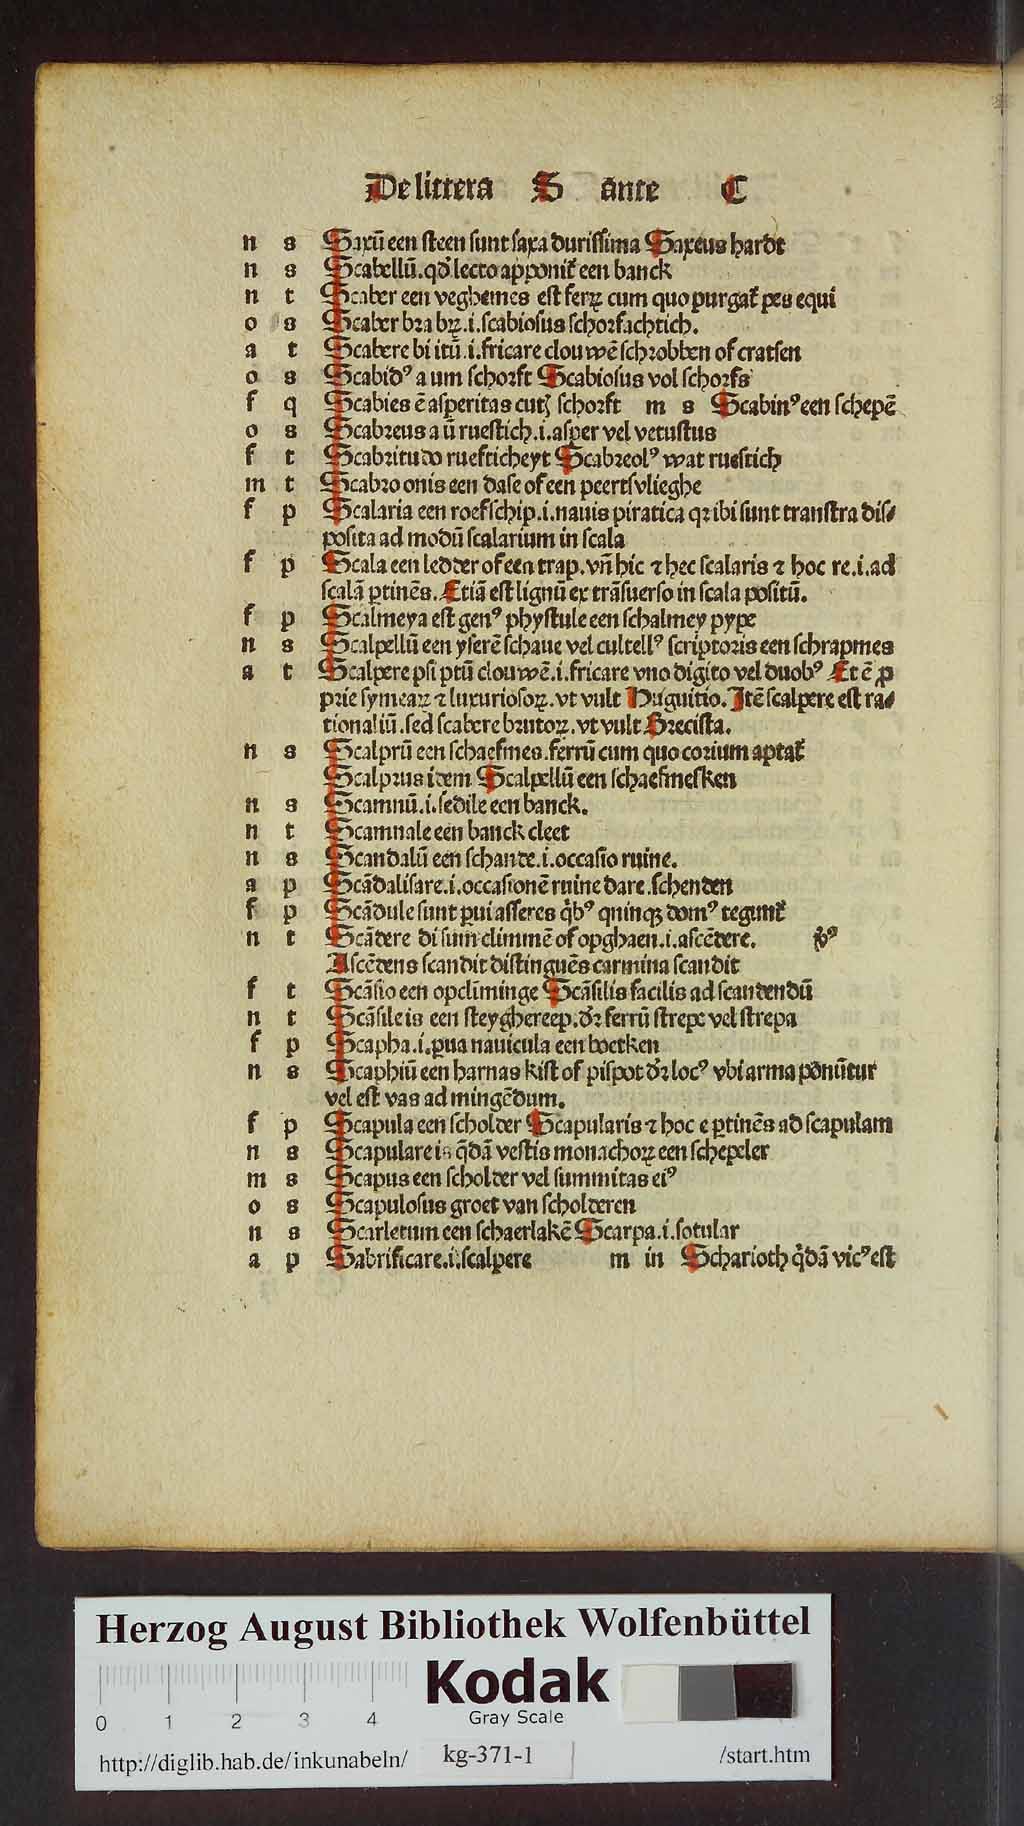 De littera S ante C
n s Saxū een steen sunt saxa durissima Saxeus hardt
n s Scabellū .qd̄ lecto apponit᷑ een banck
n t Scaber een veghemes est ferꝝ cum quo purgat᷑ pes equi
o s Scaber bra brꝝ .i. scabiosus schorfachtich.
a t Scabere bi itū .i. fricare clouwē schrobben of cratsen
o s Scabidꝰ a um schorft Scabiosus vol schorfs
f q Scabies ē asperitas cutꝭ schorft m s Scabinꝰ een schepē
o s Scabreus a ū ruestich .i. asper vel vetustus
f t Scabritudo ruesticheyt Scabreolꝰ wat ruestich
m t Scabro onis een dase of een peertsvlieghe
f p Scalaria een roefschip .i. nauis piratica qꝛ ibi sunt transtra dis⸗
posita ad modū scalarium in scala
f p Scala een ledder of een trap. vn̄ hic ⁊ hec scalaris ⁊ hoc re .i. ad
scalā ꝑtinēs. Etiā est lignū ex trāsuerso in scala positū.
f p Scalmeya est genꝰ phystule een schalmey pype
n s Scalpellū een yserē schaue vel cultellꝰ scriptoris een schrapmes
a t Scalpere psi ptū clouwē .i. fricare vno digito vel duobꝰ Et ē ꝓ
prie symeaꝝ ⁊ luxuriosoꝝ. vt vult Huguitio. Itē scalpere est ra⸗
tionaliū. sed scabere brutoꝝ. vt vult Grecista.
n s Scalprū een schaefmes. ferrū cum quo corium aptat᷑
Scalprus idem Scalpellū een schaefmesken
n s Scamnū .i. sedile een banck.
n t Scamnale een banck cleet
n s Scandalū een schande .i. occasio ruine.
a p Scādalisare .i. occasionē ruine dare. schenden
f p Scādule sunt ꝑui asseres q̇bꝰ quinqꝫ domꝰ tegunt᷑
n t Scādere di sum climmē of opghaen .i. ascēdere. v̇ꝰ
Ascēdens scandit distinguēs carmina scandit
f t Scāsio een opcliminge Scāsilis facilis ad scandendū
n t Scāsile is een steyghereep. dꝛ ferrū strepe vel strepa
f p Scapha .i. ꝑua nauicula een boetken
n s Scaphiū een harnas kist of pispot dꝛ locꝰ vbi arma ponūtur
vel est vas ad mingēdum.
f p Scapula een scholder Scapularis ⁊ hoc e ꝑtinēs ad scapulam
n s Scapulare is q̄dā vestis monachoꝝ een schepeler
m s Scapus een scholder vel summitas eiꝰ
o s Scapulosus groet van scholderen
n s Scarletum een schaerlakē Scarpa .i. sotular
a p Sabrificare .i. scalpere m in Scharioth q̇dā vicꝰ est
Herzog August Bibliothek Wolfenbüttel
Kodak
Gray Scale
0 1 2 3 4
http://diglib.hab.de/inkunabeln/ kg-371-1 /start.htm